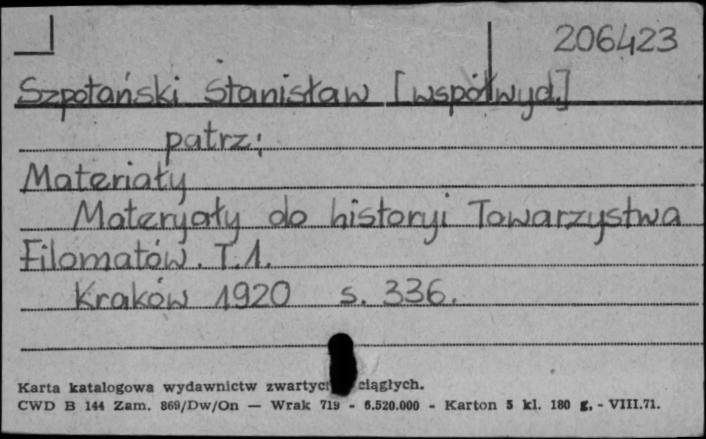 206423
Szpotański Stanisław [współwyd.]
patrz:
Materiały
Materyały do historyi Towarzystwa
Filomatów. T.1.
Kraków 1920 s. 336.
Karta katalogowa wydawnictw zwartyc ciągłych.
CWD B 144 Zam. 869/Dw/On — Wrak 719 - 6.520.000 - Karton 5 kl. 180 g. - VIII.71.